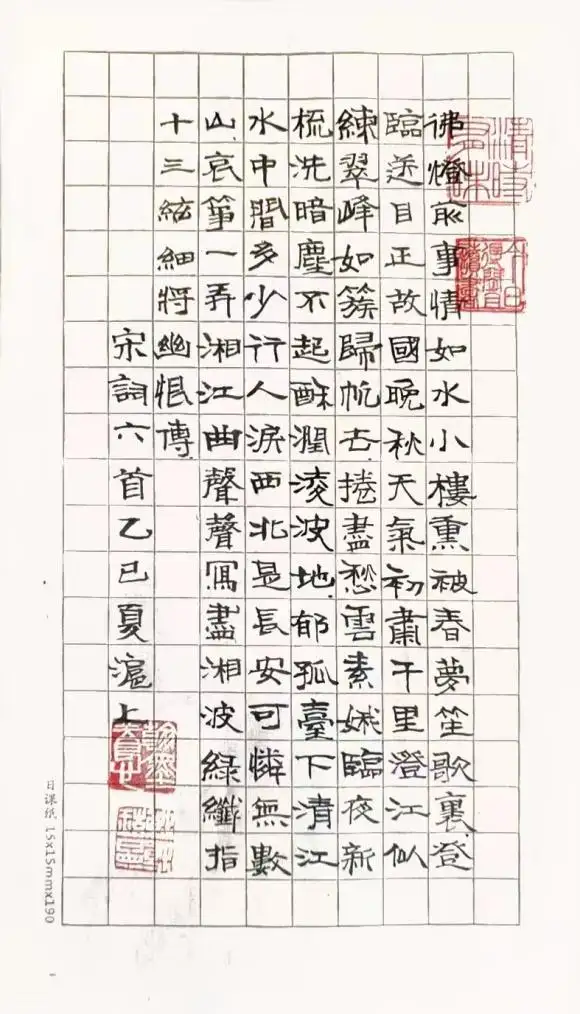 佛燈前事情如水小樓熏被春夢笙歌裏登
臨送目正故國晚秋天氣初肅千里澄江似
練翠峰如簇歸帆去捲盡愁雲素娥臨夜新
梳洗暗塵不起酥潤淩波地郁孤臺下清江
水中間多少行人淚西北是長安可憐無數
山哀箏一弄湘江曲聲聲寫盡湘波綠纖指
十三絃細將幽恨傳
宋詞六首乙巳夏滬上
清時有味
日課紙 15x15mmx190